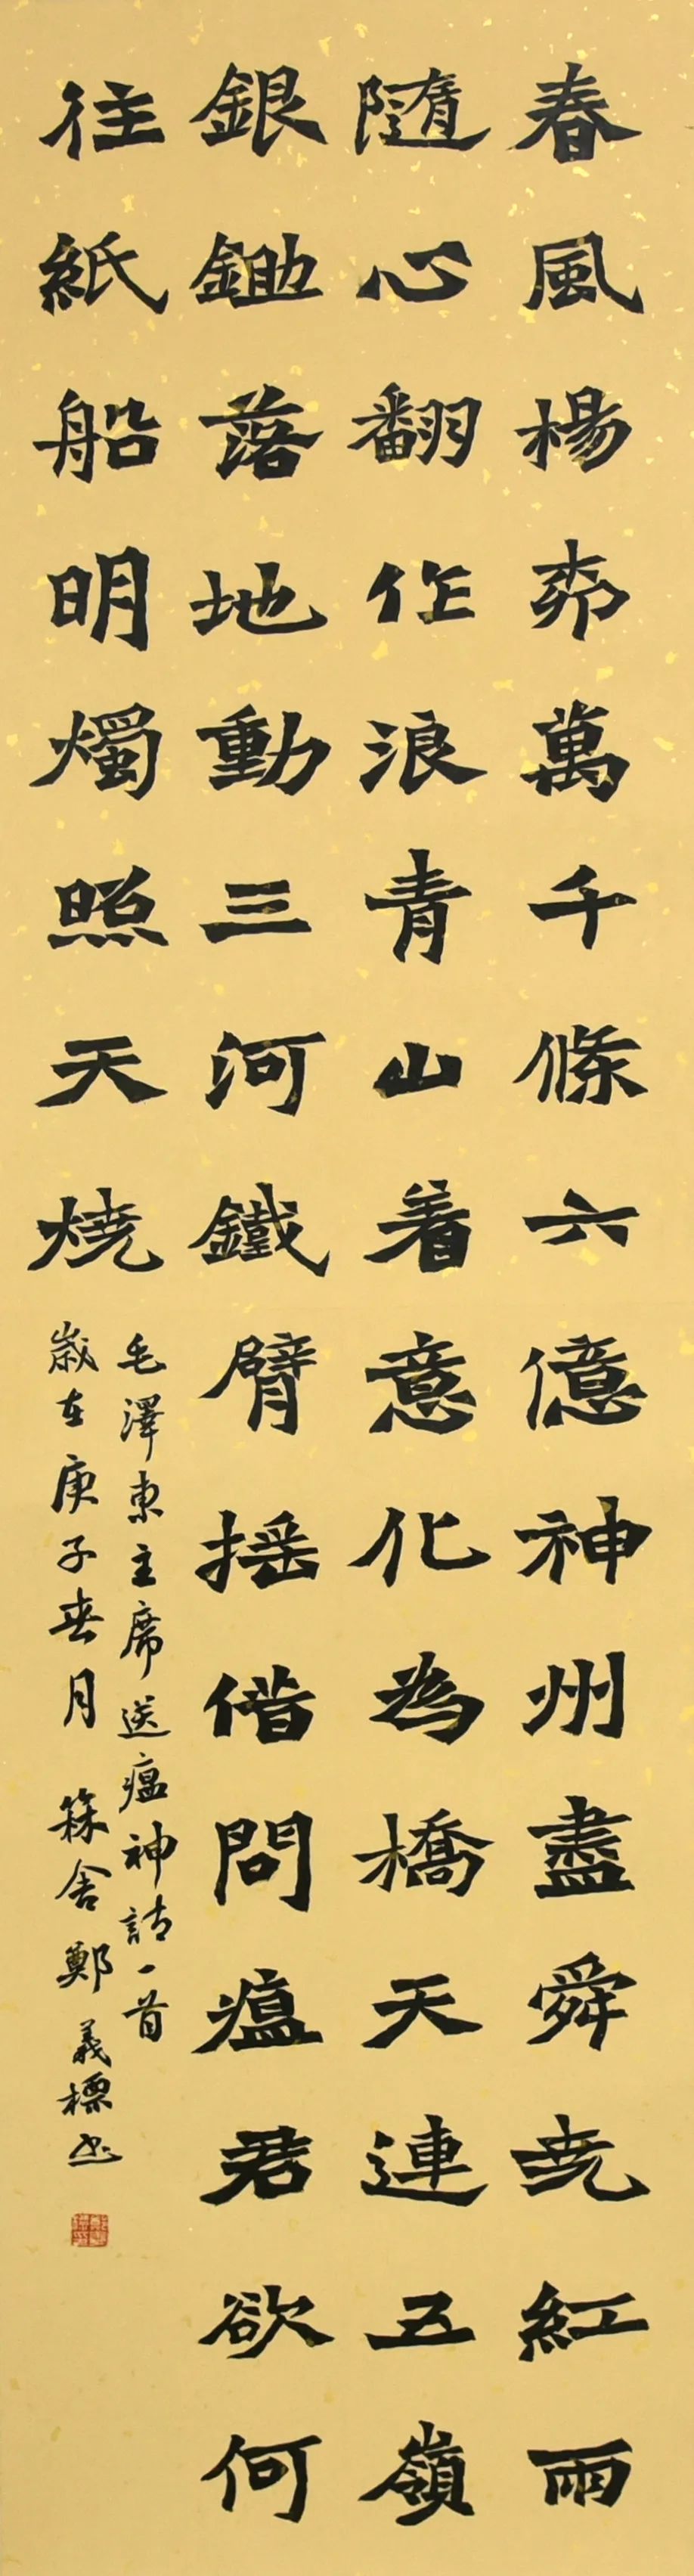 春風楊柳萬千條六億神州盡舜尭紅雨
隨心翻作浪青山着意化為橋天連五嶺
銀鋤落地動三河鐵臂摇借問瘟君欲何
往紙船明燭照天燒
毛澤東主席送瘟神詩一首
歲在庚子春月 篠舍鄭義標書